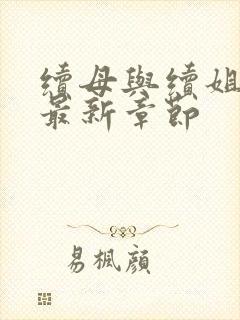 續母與續姐
最新章節
易楓顏